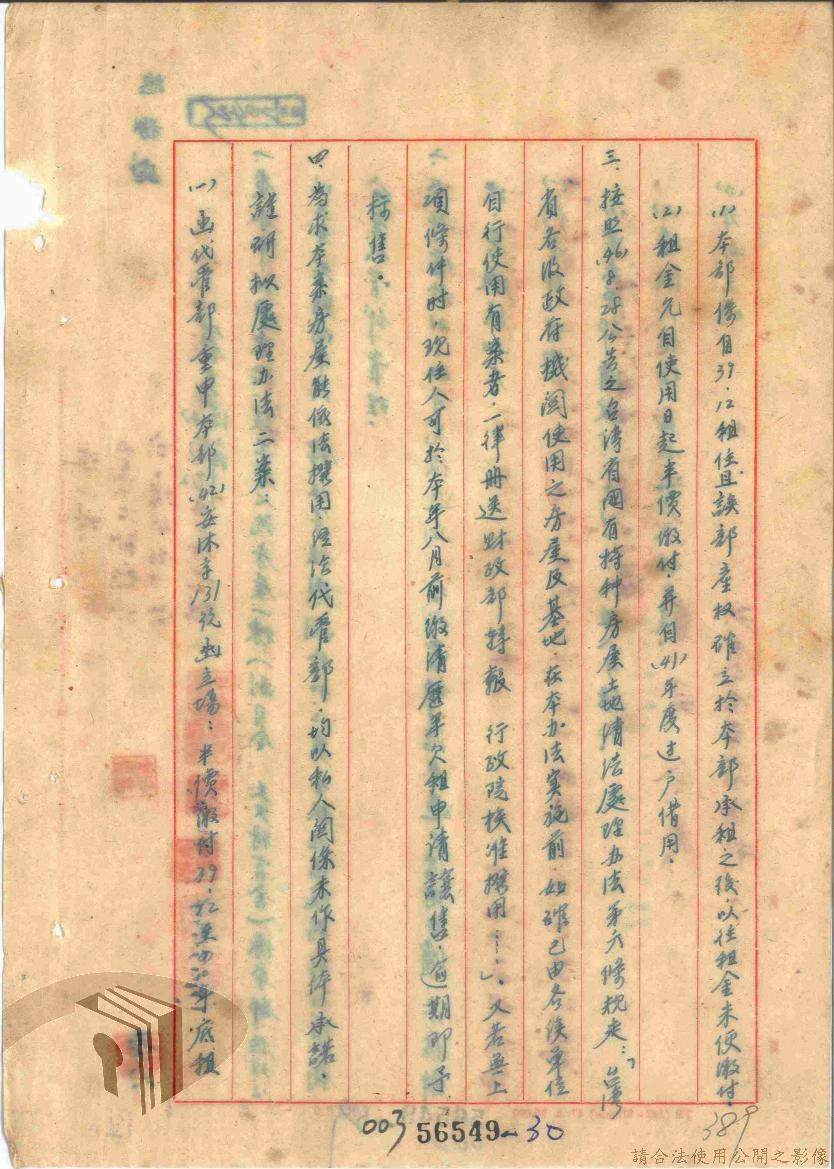 (1)本部係自39.12租住且該部產权確立於本部承租之後，以往租金未便缴付。
(2)租金允自使用日起半價缴付，并自(41)年度过户借用。
三、按照(46)8.28公告之台湾省國有特种房屋土地清浩處理办法第六條規定：「台湾
省各级政府機関使用之房屋及基地，在本办法實施前，如確已由各该單位
自行使用有案者，一律冊送財政部轉報　行政院核准撥用……」，又若無上
項條件时，现住人可於本年八月前缴清歷年欠租申请讓售，逾期即予
标售。
四、為求本案房屋能依法撥用，經洽代管部，均以私人関係未作具体承諾，
謹研拟處理办法二案：
(一)函代管部重申本部(42)安休字131號函立場：半價缴付39.12至四二年底租
003 56549-30
389
請合法使用公開之影像